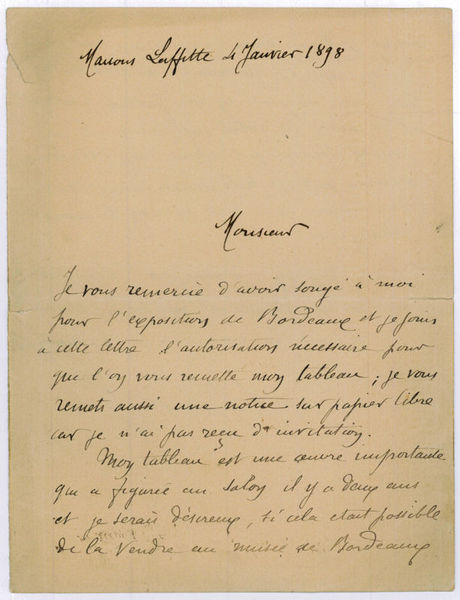 Maisons Laffitte 4 Janvier 1898
Monsieur
Je vous remercie d'avoir songé à moi
pour l'exposition de Bordeaux et je joins
à cette lettre l'autorisation nécessaire pour
que l'on vous remette mon tableau ; je vous
remets aussi une notice sur papier libre
car je n'ai pas reçu d'invitation.
Mon tableau est une œuvre importante
qui a figurée au salon il y a deux ans
et je serais désireux, si cela était possible
de la vendre au musée de Bordeaux